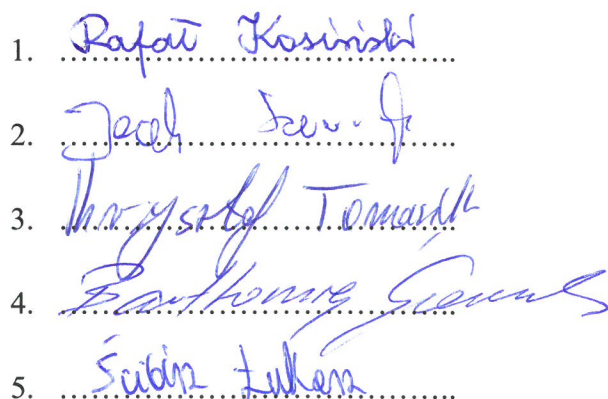 1. Rafał Kosiński
2. Jacek
3. Krzysztof Tomasik
4. Bartłomiej
5. Ścibisz Łukasz